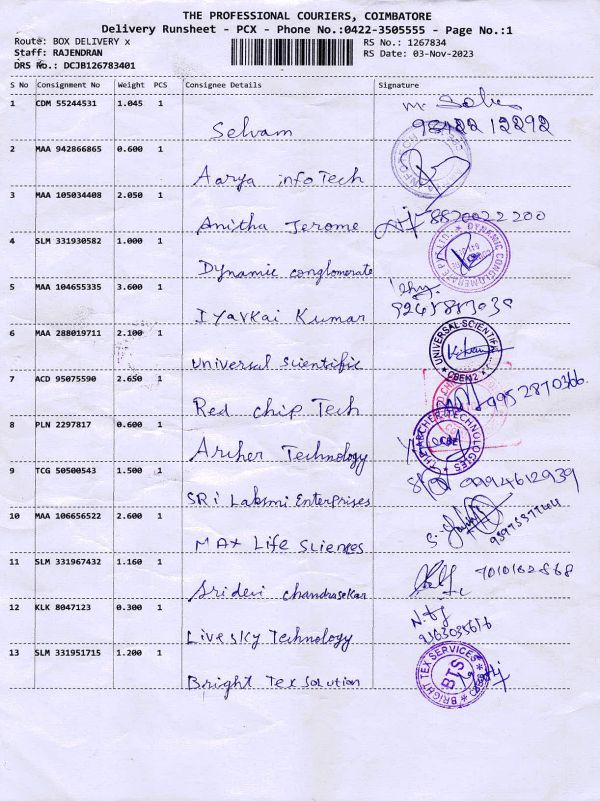 THE PROFESSIONAL COURIERS, COIMBATORE
Delivery Runsheet - PCX - Phone No.:0422-3505555 - Page No.:1
Route: BOX DELIVERY x RS No.: 1267834
Staff: RAJENDRAN RS Date: 03-Nov-2023
DRS No.: DCJB126783401
S No Consignment No Weight PCS Consignee Details Signature
1 CDM 55244531 1.045 1
Selvam
2 MAA 942866865 0.600 1
Aarya infoTech
3 MAA 105034408 2.050 1
Anitha Jerome 8820022200
4 SLM 331930582 1.000 1
Dynamic conglomerate
5 MAA 104655335 3.600 1
Iyarkai Kumar
6 MAA 288019711 2.100 1
Universal scientific UNIVERSAL SCIENTIFI
7 ACD 95075590 2.650 1
Red chip Tech 9952870366.
8 PLN 2297817 0.600 1
Archer Technology ARCHER TECHNOLOGIES
9 TCG 50500543 1.500 1
SRi Laksmi Enterprises 9994612939
10 MAA 106656522 2.600 1
MAX Life Sciences
11 SLM 331967432 1.160 1
Sridevi chandrasekar 7010162868
12 KLK 8047123 0.300 1
Livesky Technology
13 SLM 331951715 1.200 1
Bright Tex Solution BRIGHT TEX SERVICES BTS